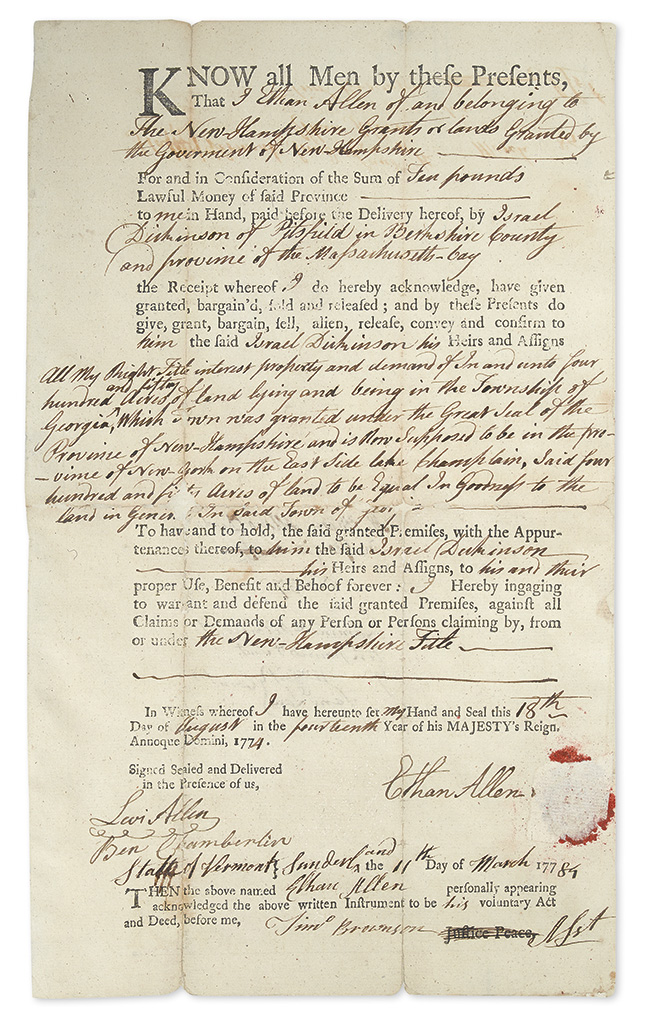 KNOW all Men by theſe Preſents,
That I Ethan Allen of and belonging to
The New-Hampshire Grants or lands Granted by
the Goverment of New-Hampshire
For and in Conſideration of the Sum of Ten pounds
Lawful Money of ſaid Province
to me in Hand, paid before the Delivery hereof, by Israel
Dickinson of Pitsfield in Berkshire County
and provinse of the Massachusetts-bay
the Receipt whereof I do hereby acknowledge, have given
granted, bargain'd, ſold and releaſed ; and by theſe Preſents do
give, grant, bargain, ſell, alien, releaſe, convey and confirm to
him the ſaid Israel Dickinson his Heirs and Aſſigns
All My Right Title interest property and demand of In and unto four
hundred and fifty Acres of land lying and being in the Township of
Georgia, Which Town was granted under the Great Seal of the
Province of New-Hampshire and is Now Supposed to be in the pro-
-vinse of New-York on the East Side lake Champlain, Said four
hundred and fifty Acres of land to be Equal In Goodness to the
land in General In Said Town of
To have and to hold, the ſaid granted Premiſes, with the Appur-
tenances thereof, to him the ſaid Israel Dickinson
his Heirs and Aſſigns, to his and their
proper Uſe, Benefit and Behoof forever : I Hereby ingaging
to warrant and defend the ſaid granted Premiſes, againſt all
Claims or Demands of any Perſon or Perſons claiming by, from
or under the New-Hampshire Title
In Witneſs whereof I have hereunto ſet my Hand and Seal this 18th
Day of August in the fourteenth Year of his MAJESTY's Reign.
Annoque Domini, 1774.
Signed Sealed and Delivered
in the Preſence of us,
Ethan Allen
Levi Allen
Ben Chamberlin
State of Vermont } Sunderland the 11th Day of March 17784
THEN the above named Ethan Allen perſonally appearing
acknowledged the above written Inſtrument to be his voluntary Act
and Deed, before me, Timo Brownson Juſtice Peace, Asst